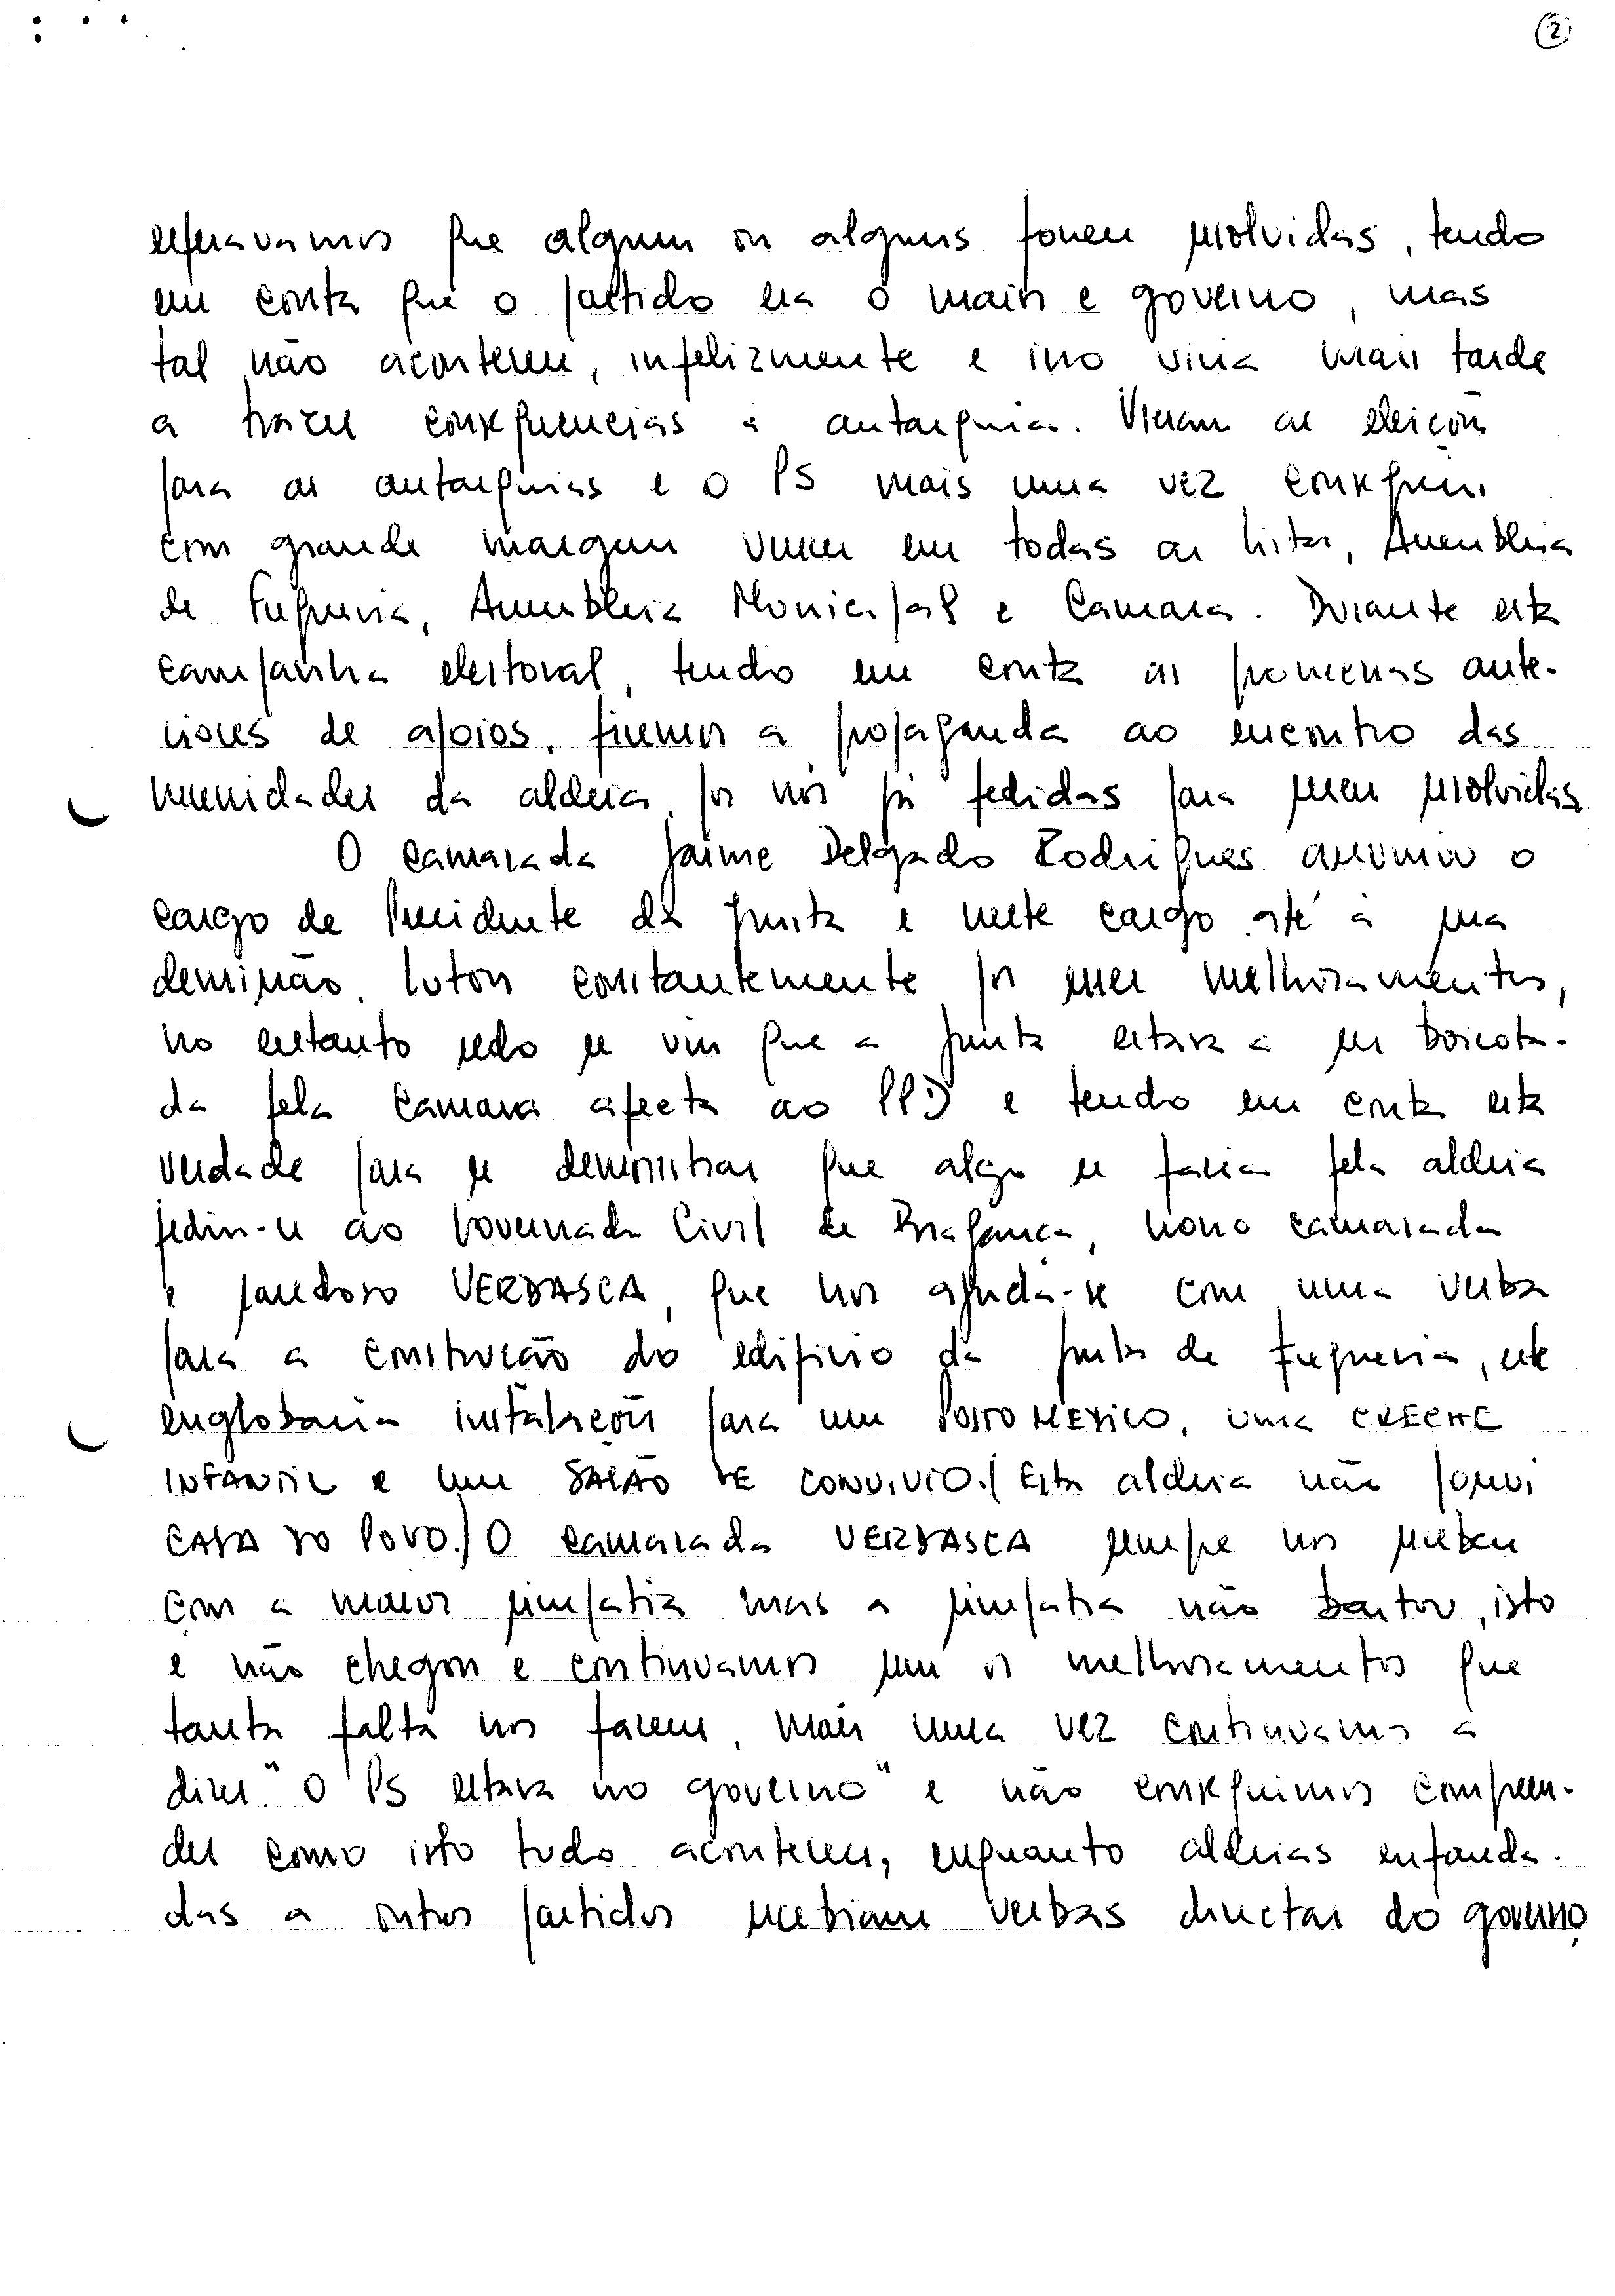 ②
esperavamos que algum ou alguns fossem resolvidas, tendo
em conta que o partido era o mais e governo, mas
tal não aconteceu, infelizmente e isso viria mais tarde
a trazer consequencias á autarquia. Vieram as eleições
para as autarquias e o PS mais uma vez conseguiu
com grande margem vencer em todas as listas, Assembleia
de Freguesia, Assembleia Municipal e Camara. Durante esta
campanha eleitoral, tendo em conta as promessas ante-
riores de apoios, fizemos a propaganda ao encontro das
necessidades da aldeia, por nós já pedidas para serem resolvidas
O camarada Jaime Delgado Rodrigues assumiu o
cargo de Presidente da Junta e neste cargo até á sua
demissão, lutou constantemente por esses melhoramentos,
no entanto cedo se viu que a Junta estava a ser boicota-
da pela Camara afecta ao PPD e tendo em conta esta
verdade para se demonstrar que algo se faria pela aldeia
pediu-se ao Governador Civil de Bragança, nosso camarada
e saudoso VERDASCA, que nos ajuda-se com uma verba
para a construção do edificio da Junta de Freguesia, este
englobaria instalações para um POSTO MEDICO, uma CRECHE
INFANTIL e um SALÃO DE CONVIVIO./ Esta aldeia não possui
CASA DO POVO./ O camarada VERDASCA sempre nos recebeu
com a maior simpatia mas a simpatia não bastou, isto
e não chegou e continuamos sem os melhoramentos que
tanta falta nos fazem, mais uma vez continuamos a
dizer "O PS estava no governo" e não conseguimos compreen-
der como isto tudo aconteceu, enquanto aldeias enfeuda-
das a outros partidos recebiam verbas directas do governo,